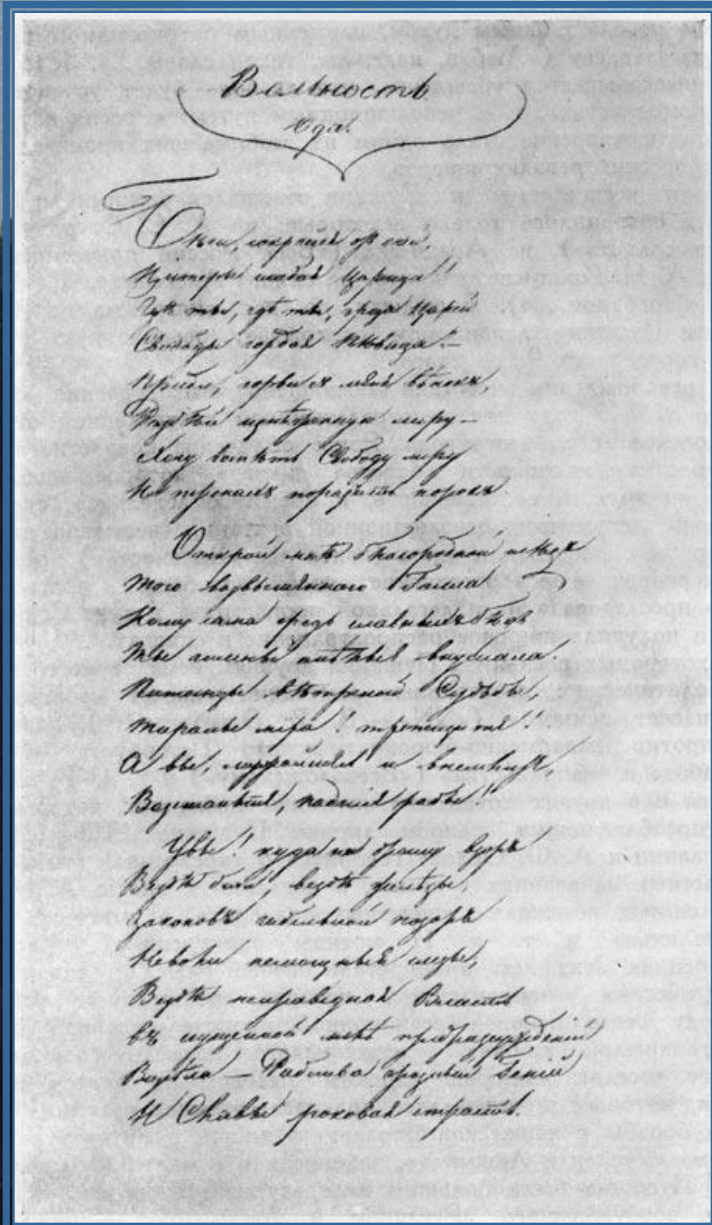 Вольность
Ода.
Бѣги, сокройся отъ очей,
Цитеры слабая Царица!
Гдѣ ты, гдѣ ты, гроза Царей
Свободы гордая Пѣвица? —
Приди, сорви съ меня вѣнокъ,
Разбей изнѣженную лиру —
Хочу воспѣть Свободу миру
На тронахъ поразить порокъ
Открой мнѣ благородной слѣдъ
Того возвышеннаго Галла
Кому сама средь славныхъ бѣдъ
Ты гимны смѣлыя внушала,
Питомцы вѣтреной Судьбы,
Тираны міра! трепещите!
А вы, мужайтесь и внемлите,
Возстаньте, падшіе рабы!
Увы! куда ни брошу взоръ
Вездѣ бичи, вездѣ желѣзы,
Законовъ гибельной позоръ
Неволи немощныя слезы;
Вездѣ неправедная Власть
въ сгущенной мглѣ предразсужденій
Возсѣла — Рабства грозный Геній
И Славы роковая страсть.